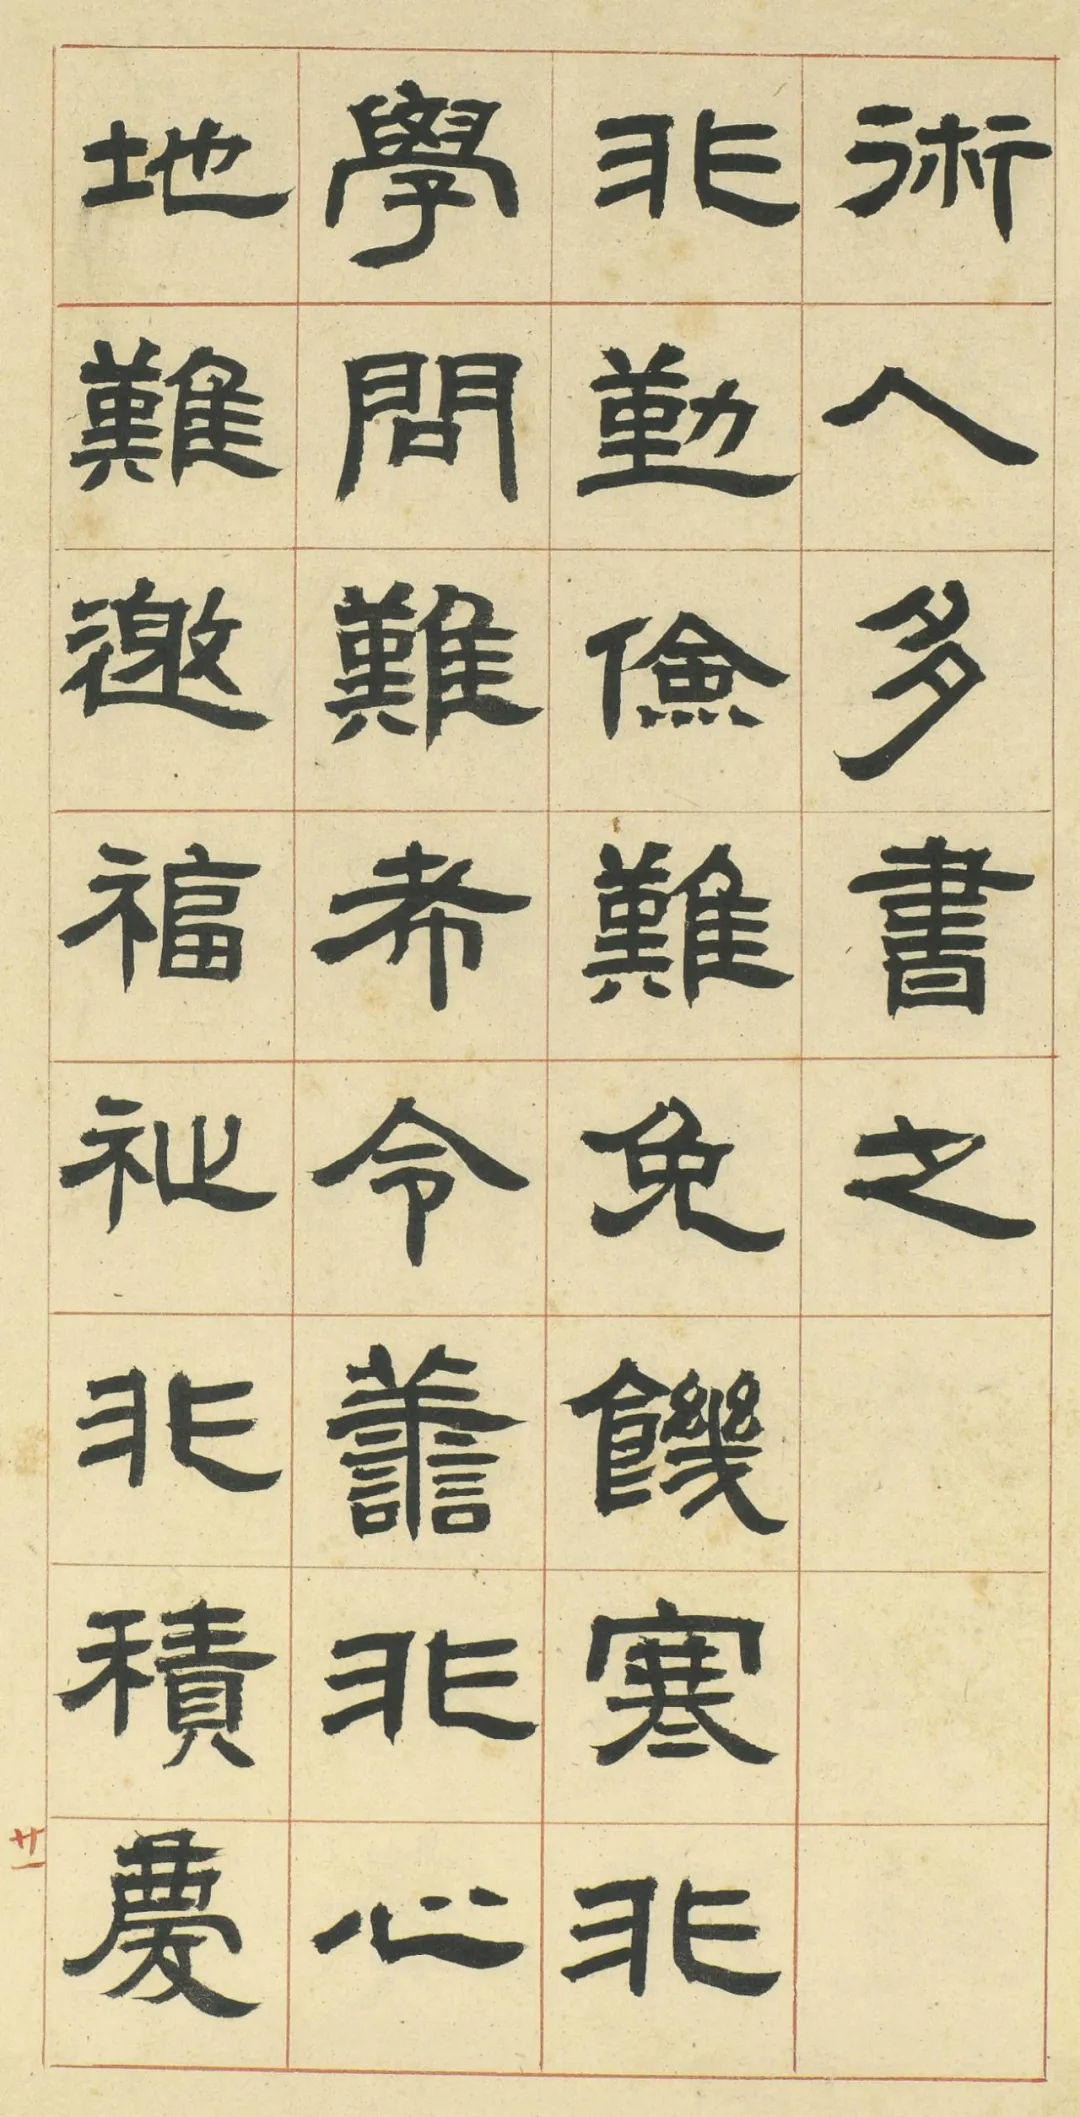 術人多書之
非勤儉難免饑寒非
學問難希令譱非心
地難邀福祉非積慶
廿一